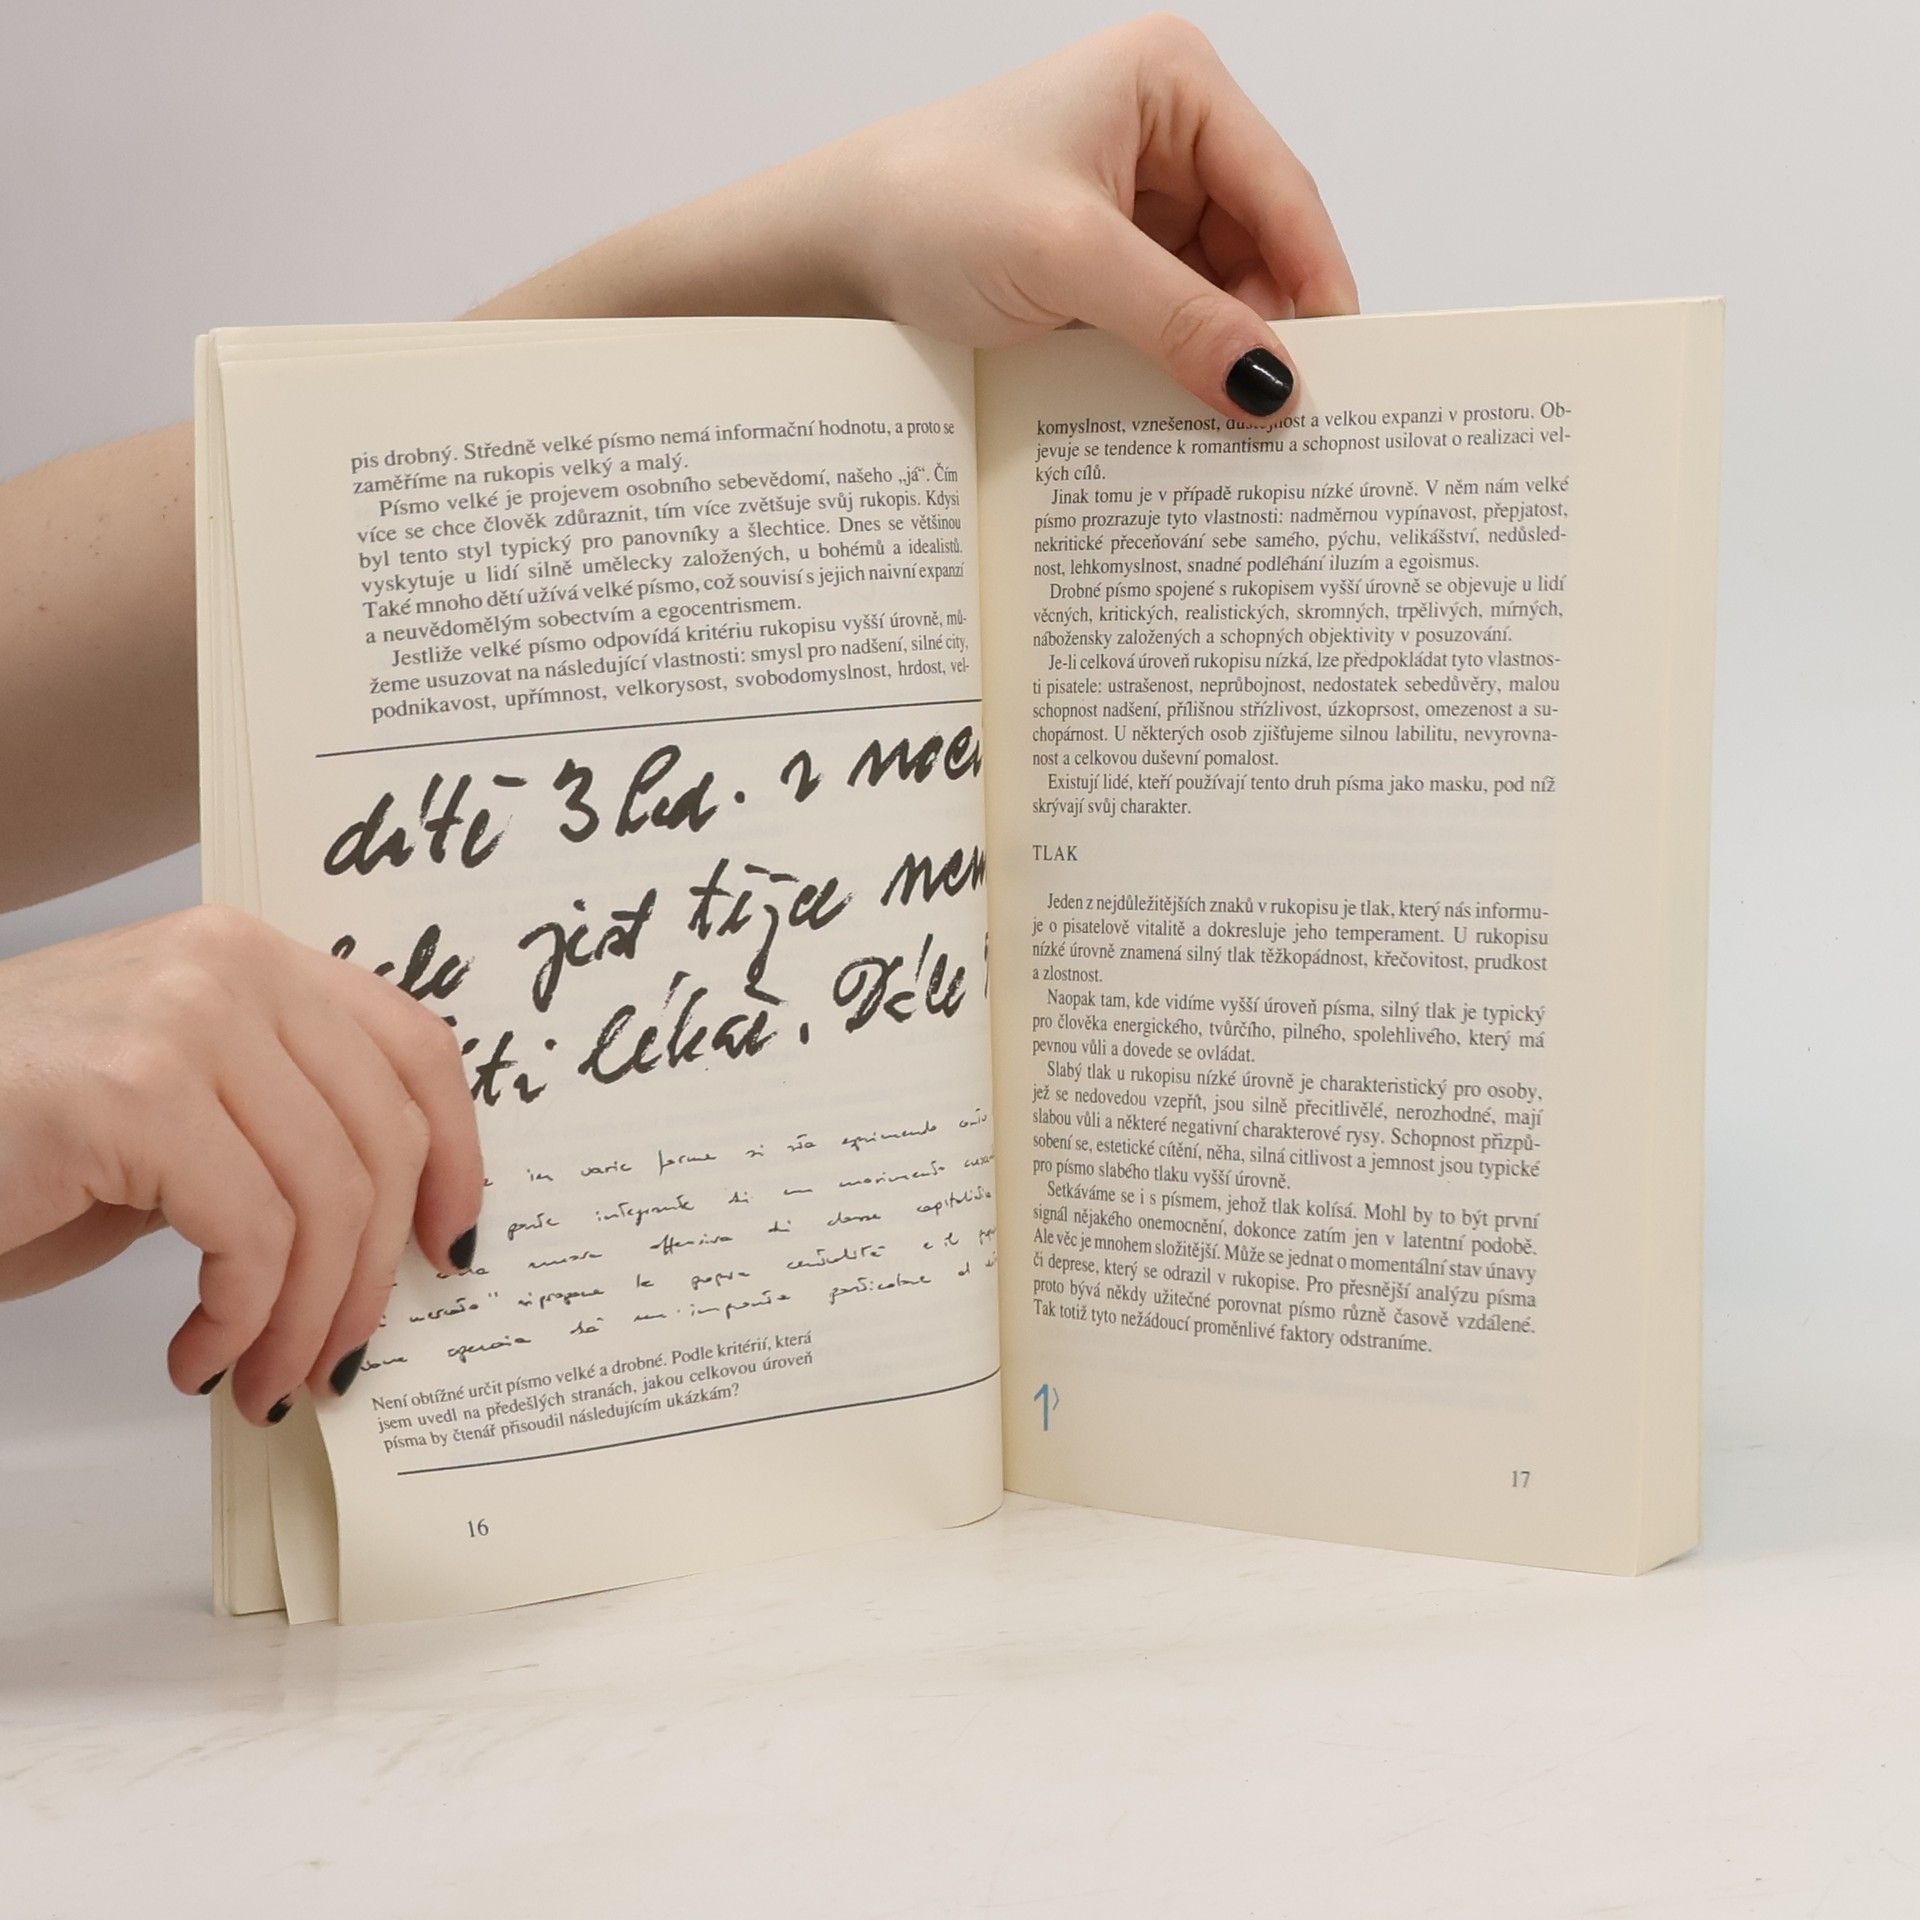 pis drobný. Středně velké písmo nemá informační hodnotu, a proto se
zaměříme na rukopis velký a malý.
Písmo velké je projevem osobního sebevědomí, našeho „já“. Čím
více se chce člověk zdůraznit, tím více zvětšuje svůj rukopis. Kdysi
byl tento styl typický pro panovníky a šlechtice. Dnes se většinou
vyskytuje u lidí silně umělecky založených, u bohémů a idealistů.
Také mnoho dětí užívá velké písmo, což souvisí s jejich naivní expanzí
a neuvědomělým sobectvím a egocentrismem.
Jestliže velké písmo odpovídá kritériu rukopisu vyšší úrovně, mů-
žeme usuzovat na následující vlastnosti: smysl pro nadšení, silné city,
podnikavost, upřímnost, velkorysost, svobodomyslnost, hrdost, vel-
dítě 3 led. v
jíst
lékař.
in varie forme si sta esprimendo
parte integrante di un movimento
offensiva di classe
si propone la propria centralità e il
di un'impronta particolare
Není obtížné určit písmo velké a drobné. Podle kritérií, která
jsem uvedl na předešlých stranách, jakou celkovou úroveň
písma by čtenář přisoudil následujícím ukázkám?
16
komyslnost, vznešenost, a velkou expanzi v prostoru. Ob-
jevuje se tendence k romantismu a schopnost usilovat o realizaci vel-
kých cílů.
Jinak tomu je v případě rukopisu nízké úrovně. V něm nám velké
písmo prozrazuje tyto vlastnosti: nadměrnou vypínavost, přepjatost,
nekritické přeceňování sebe samého, pýchu, velikášství, nedůsled-
nost, lehkomyslnost, snadné podléhání iluzím a egoismus.
Drobné písmo spojené s rukopisem vyšší úrovně se objevuje u lidí
věcných, kritických, realistických, skromných, trpělivých, mírných,
nábožensky založených a schopných objektivity v posuzování.
Je-li celková úroveň rukopisu nízká, lze předpokládat tyto vlastnos-
ti pisatele: ustrašenost, neprůbojnost, nedostatek sebedůvěry, malou
schopnost nadšení, přílišnou střízlivost, úzkoprsost, omezenost a su-
chopárnost. U některých osob zjišťujeme silnou labilitu, nevyrovna-
nost a celkovou duševní pomalost.
Existují lidé, kteří používají tento druh písma jako masku, pod níž
skrývají svůj charakter.
TLAK
Jeden z nejdůležitějších znaků v rukopisu je tlak, který nás informu-
je o pisatelově vitalitě a dokresluje jeho temperament. U rukopisu
nízké úrovně znamená silný tlak těžkopádnost, křečovitost, prudkost
a zlostnost.
Naopak tam, kde vidíme vyšší úroveň písma, silný tlak je typický
pro člověka energického, tvůrčího, pilného, spolehlivého, který má
pevnou vůli a dovede se ovládat.
Slabý tlak u rukopisu nízké úrovně je charakteristický pro osoby,
jež se nedovedou vzepřít, jsou silně přecitlivělé, nerozhodné, mají
slabou vůli a některé negativní charakterové rysy. Schopnost přizpů-
sobení se, estetické cítění, něha, silná citlivost a jemnost jsou typické
pro písmo slabého tlaku vyšší úrovně.
Setkáváme se i s písmem, jehož tlak kolísá. Mohl by to být první
signál nějakého onemocnění, dokonce zatím jen v latentní podobě.
Ale věc je mnohem složitější. Může se jednat o momentální stav únavy
či deprese, který se odrazil v rukopise. Pro přesnější analýzu písma
proto bývá někdy užitečné porovnat písmo různě časově vzdálené.
Tak totiž tyto nežádoucí proměnlivé faktory odstraníme.
17